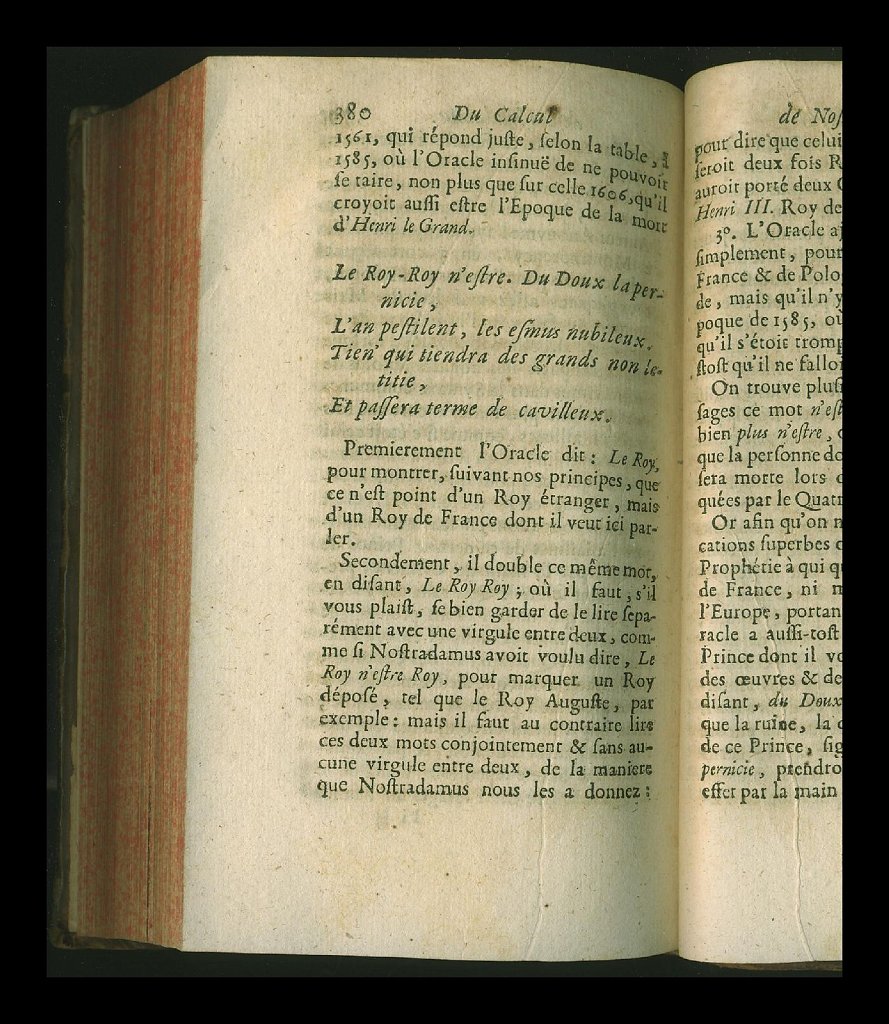 380 Du Calcul
1561, qui répond juſte, ſelon la table, à
1585, où l'Oracle inſinuë de ne pouvoir
ſe taire, non plus que ſur celle 1606, qu'il
croyoit auſſi eſtre l'Epoque de la mort
d'Henri le Grand.
Le Roy-Roy n'eſtre. Du Doux la per-
nicie,
L'an peſtilent, les eſmus nubileux.
Tien' qui tiendra des grands non le-
titie,
Et paſſera terme de cavilleux.
Premierement l'Oracle dit : Le Roy,
pour montrer, ſuivant nos principes, que
ce n'eſt point d'un Roy étranger, mais
d'un Roy de France dont il veut ici par-
ler.
Secondement, il double ce même mot,
en diſant, Le Roy Roy ; où il faut, s'il
vous plaiſt, ſe bien garder de le lire ſepa-
rément avec une virgule entre deux, com-
me ſi Noſtradamus avoit voulu dire, Le
Roy n'eſtre Roy, pour marquer un Roy
dépoſé, tel que le Roy Auguſte, par
exemple : mais il faut au contraire lire
ces deux mots conjointement & ſans au-
cune virgule entre deux, de la maniere
que Noſtradamus nous les a donnez :
de Noſ
pour dire que celui
ſeroit deux fois R
auroit porté deux
Henri III. Roy de
3°. L'Oracle aj
ſimplement, pour
France & de Polo
de, mais qu'il n'y
poque de 1585, où
qu'il s'étoit tromp
ſtoſt qu'il ne falloi
On trouve pluſ
ſages ce mot n'eſt
bien plus n'eſtre,
que la perſonne do
ſera morte lors
quées par le Quatr
Or afin qu'on n
cations ſuperbes
Prophétie à qui q
de France, ni
l'Europe, portan
racle a auſſi-toſt
Prince dont il vo
des œuvres & de
diſant, du Doux
que la ruine, la
de ce Prince, ſig
pernicie, prendro
effet par la main